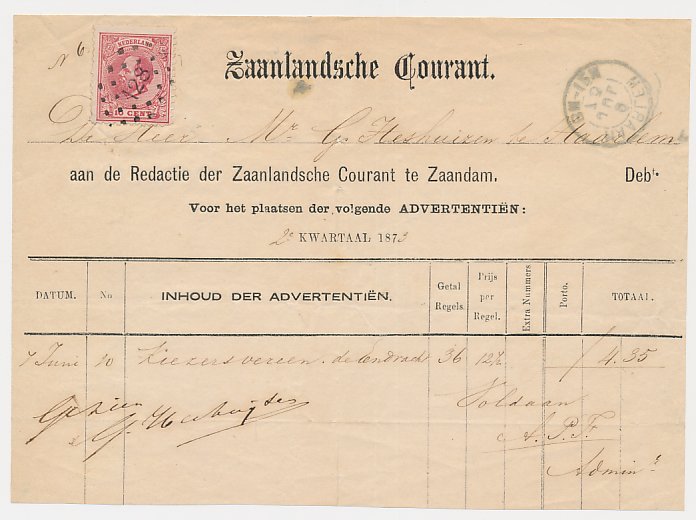 No 6
NEDERLAND
10 CENT
Zaanlandsche Courant.
De Heer Mr G. Heshuizen te Haarlem
aan de Redactie der Zaanlandsche Courant te Zaandam. Debt.
Voor het plaatsen der volgende ADVERTENTIËN:
2e KWARTAAL 1873
DATUM. No INHOUD DER ADVERTENTIËN. Getal Regels. Prijs per Regel. Extra Nummers Porto. TOTAAL.
7 Juni 10 Kiezersvereen. de Eendracht 36 12½ / 4.35
Gezien
Voldaan
A. P. F.
Adminr